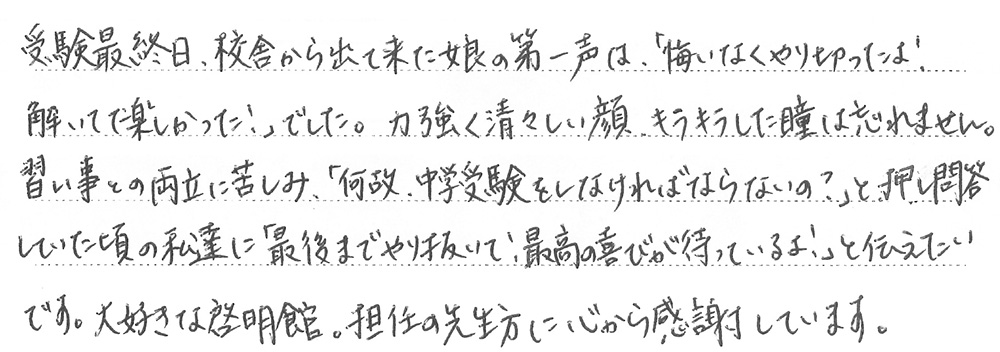 受験最終日、校舎から出て来た娘の第一声は、「悔いなくやり切ったよ!
解いてて楽しかった!」でした。力強く清々しい顔、キラキラした瞳は忘れません。
習い事との両立に苦しみ、「何故、中学受験をしなければならないの?」と、押し問答
していた頃の私達に「最後までやり抜いて!最高の喜びが待っているよ!」と伝えたい
です。大好きな啓明館。担任の先生方に心から感謝しています。